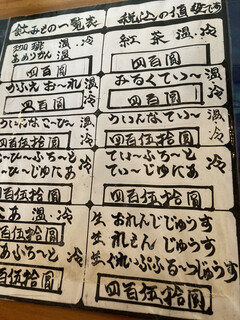 飲みもの一覧表
税込の値段です
珈琲 温.冷
あめりかん 温
四百圓
かふぇおーれ 温.冷
四百圓
ういんなこーひー 温.冷
四百伍拾圓
ひーふろーと
ーひーじゅにあ
四百伍拾圓
こあ 温.冷
四百伍拾圓
こあふろーと 冷
四百伍拾圓
紅茶 温.冷
四百圓
みるくてぃー 温.冷
四百圓
ういんなてぃー 温.冷
四百伍拾圓
てぃーふろーと
てぃーじゅにあ
四百伍拾圓
生 おれんじじゅうす
生 れもんじゅうす
生 ぐれいぷふるーつじゅうす
四百伍拾圓